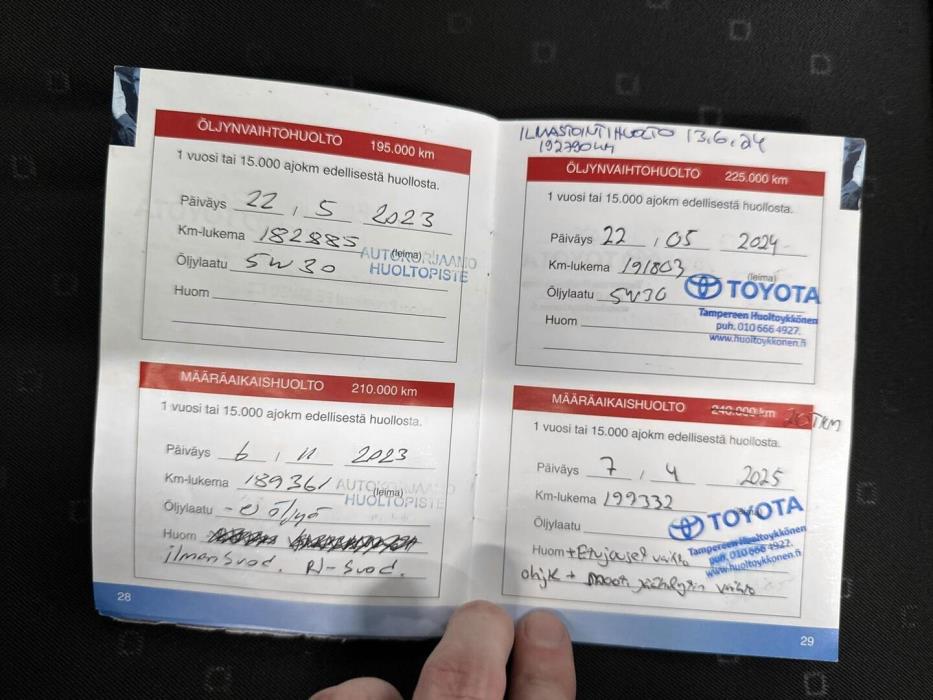 ÖLJYNVAIHTOHUOLTO 195.000 km
1 vuosi tai 15.000 ajokm edellisestä huollosta.
Päiväys 22 , 5 2023
Km-lukema 182885
(leima)
AUTOKORJAAMO
HUOLTOPISTE
Öljylaatu 5W30
Huom
MÄÄRÄAIKAISHUOLTO 210.000 km
1 vuosi tai 15.000 ajokm edellisestä huollosta.
Päiväys 6 , 11 2023
Km-lukema 189361
(leima)
AUTOKORJAAMO
HUOLTOPISTE
Öljylaatu - ei öljyä
Huom
ilmansuod. RJ-suod.
28
ILMASTOINTIHUOLTO 13.6.24
192790km
ÖLJYNVAIHTOHUOLTO 225.000 km
1 vuosi tai 15.000 ajokm edellisestä huollosta.
Päiväys 22 , 05 2024
Km-lukema 191803
(leima)
Öljylaatu 5W30
TOYOTA
Tampereen Huoltoykkönen
puh. 010 666 4927.
www.huoltoykkonen.fi
Huom
MÄÄRÄAIKAISHUOLTO 240.000 km
1 vuosi tai 15.000 ajokm edellisestä huollosta.
Päiväys 7 , 4 2025
Km-lukema 199332
Öljylaatu
TOYOTA
Tampereen Huoltoykkönen
puh. 010 666 4927.
www.huoltoykkonen.fi
Huom + vaihto
+ vaihto
29